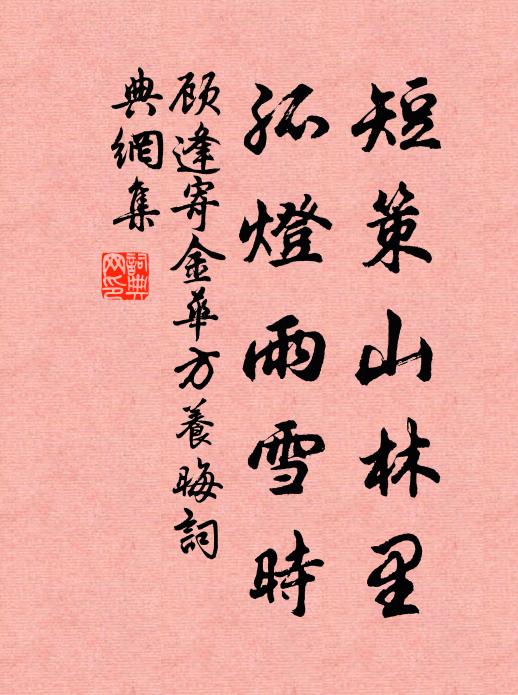 短策山林里
孤燈雨雪時
顾逢寄金華方養晦詞
典網集
詞典
网印